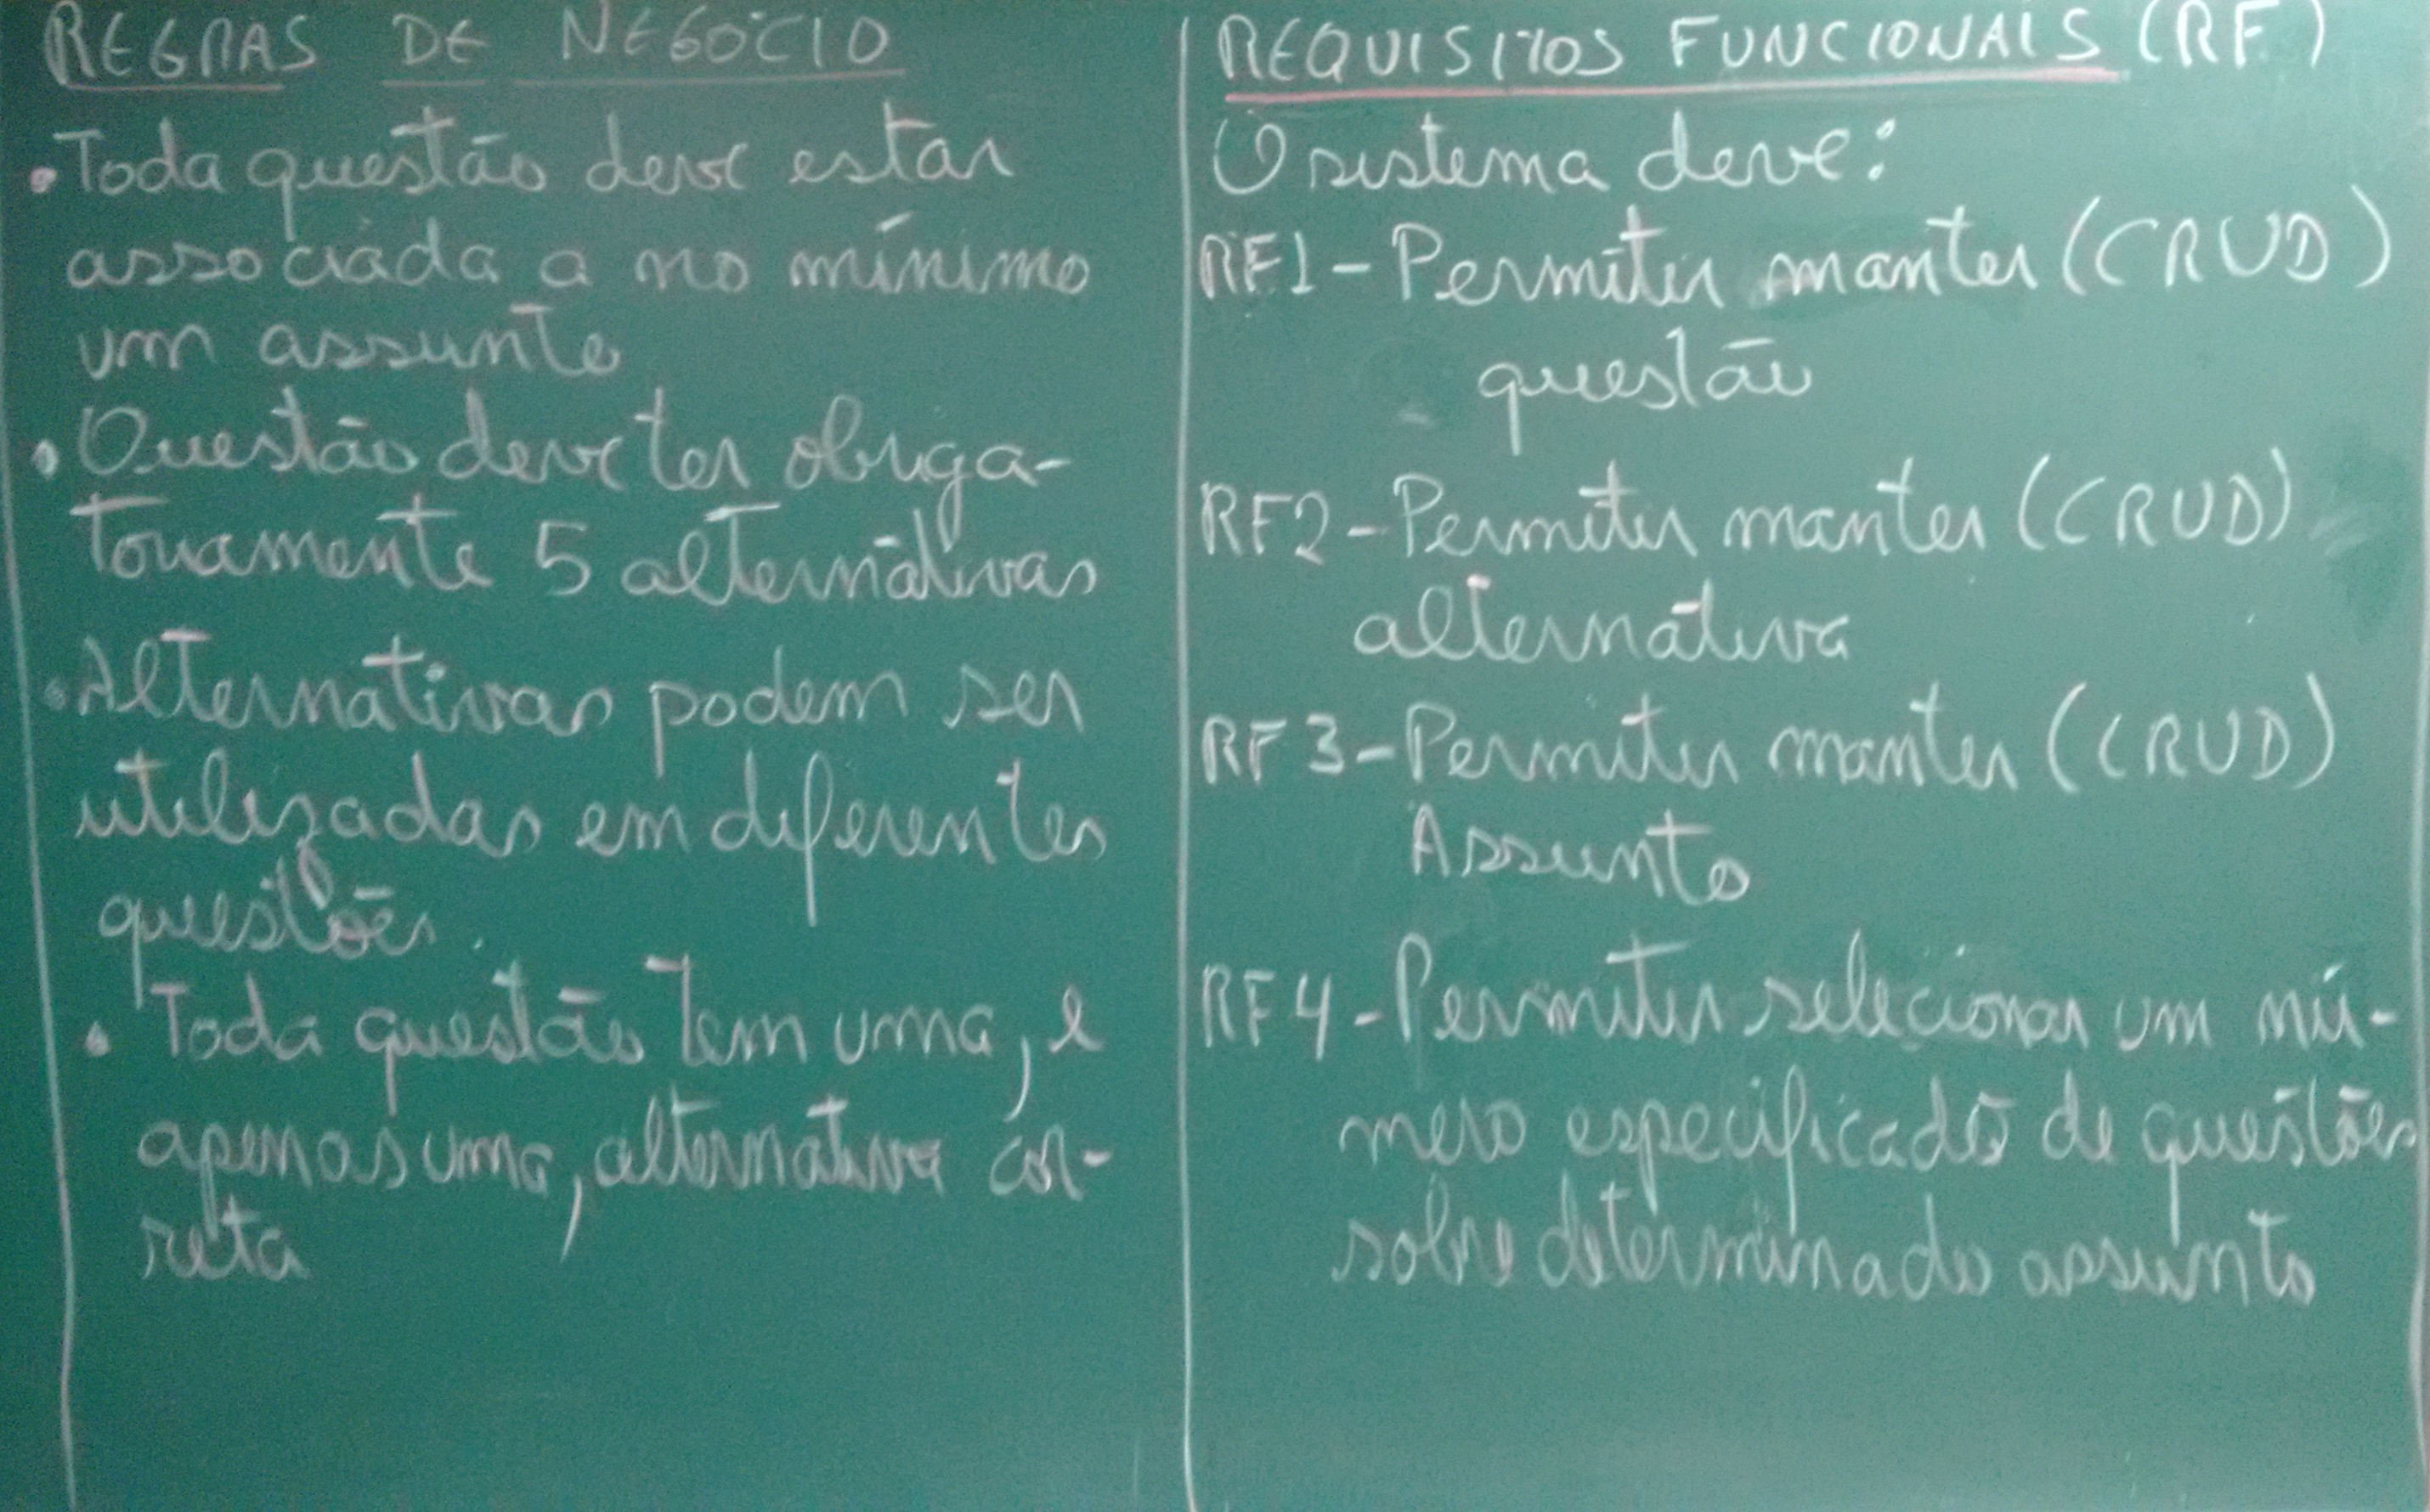 REGRAS DE NEGÓCIO
• Toda questão deve estar
associada a no mínimo
um assunto
• Questão deve ter obriga-
toriamente 5 alternativas
• Alternativas podem ser
utilizadas em diferentes
questões.
• Toda questão tem uma, e
apenas uma, alternativa cor-
reta
REQUISITOS FUNCIONAIS (RF)
O sistema deve:
RF1 - Permitir manter (CRUD)
questão
RF2 - Permitir manter (CRUD)
alternativa
RF3 - Permitir manter (CRUD)
Assunto
RF4 - Permitir selecionar um nú-
mero especificado de questões
sobre determinado assunto